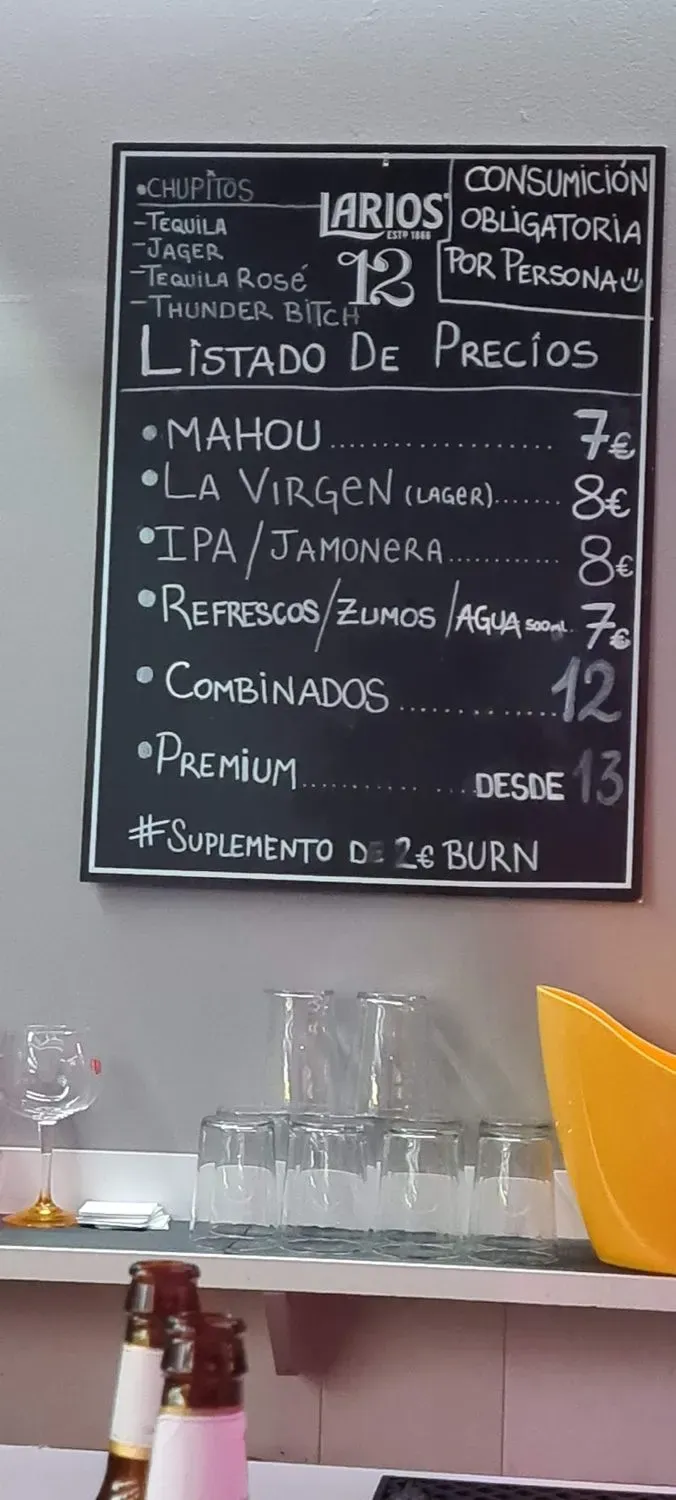 •CHUPITOS
-TEQUILA
-JAGER
-TEQUILA ROSÉ
-THUNDER BITCH
LARIOS
ESTD 1866
12
CONSUMICIÓN
OBLIGATORIA
POR PERSONA
LISTADO DE PRECIOS
•MAHOU.................. 7€
•LA VIRGEN (LAGER)....... 8€
•IPA/JAMONERA........... 8€
•REFRESCOS/ZUMOS/AGUA 500mL. 7€
•COMBINADOS............12
•PREMIUM............DESDE 13
#SUPLEMENTO DE 2€ BURN